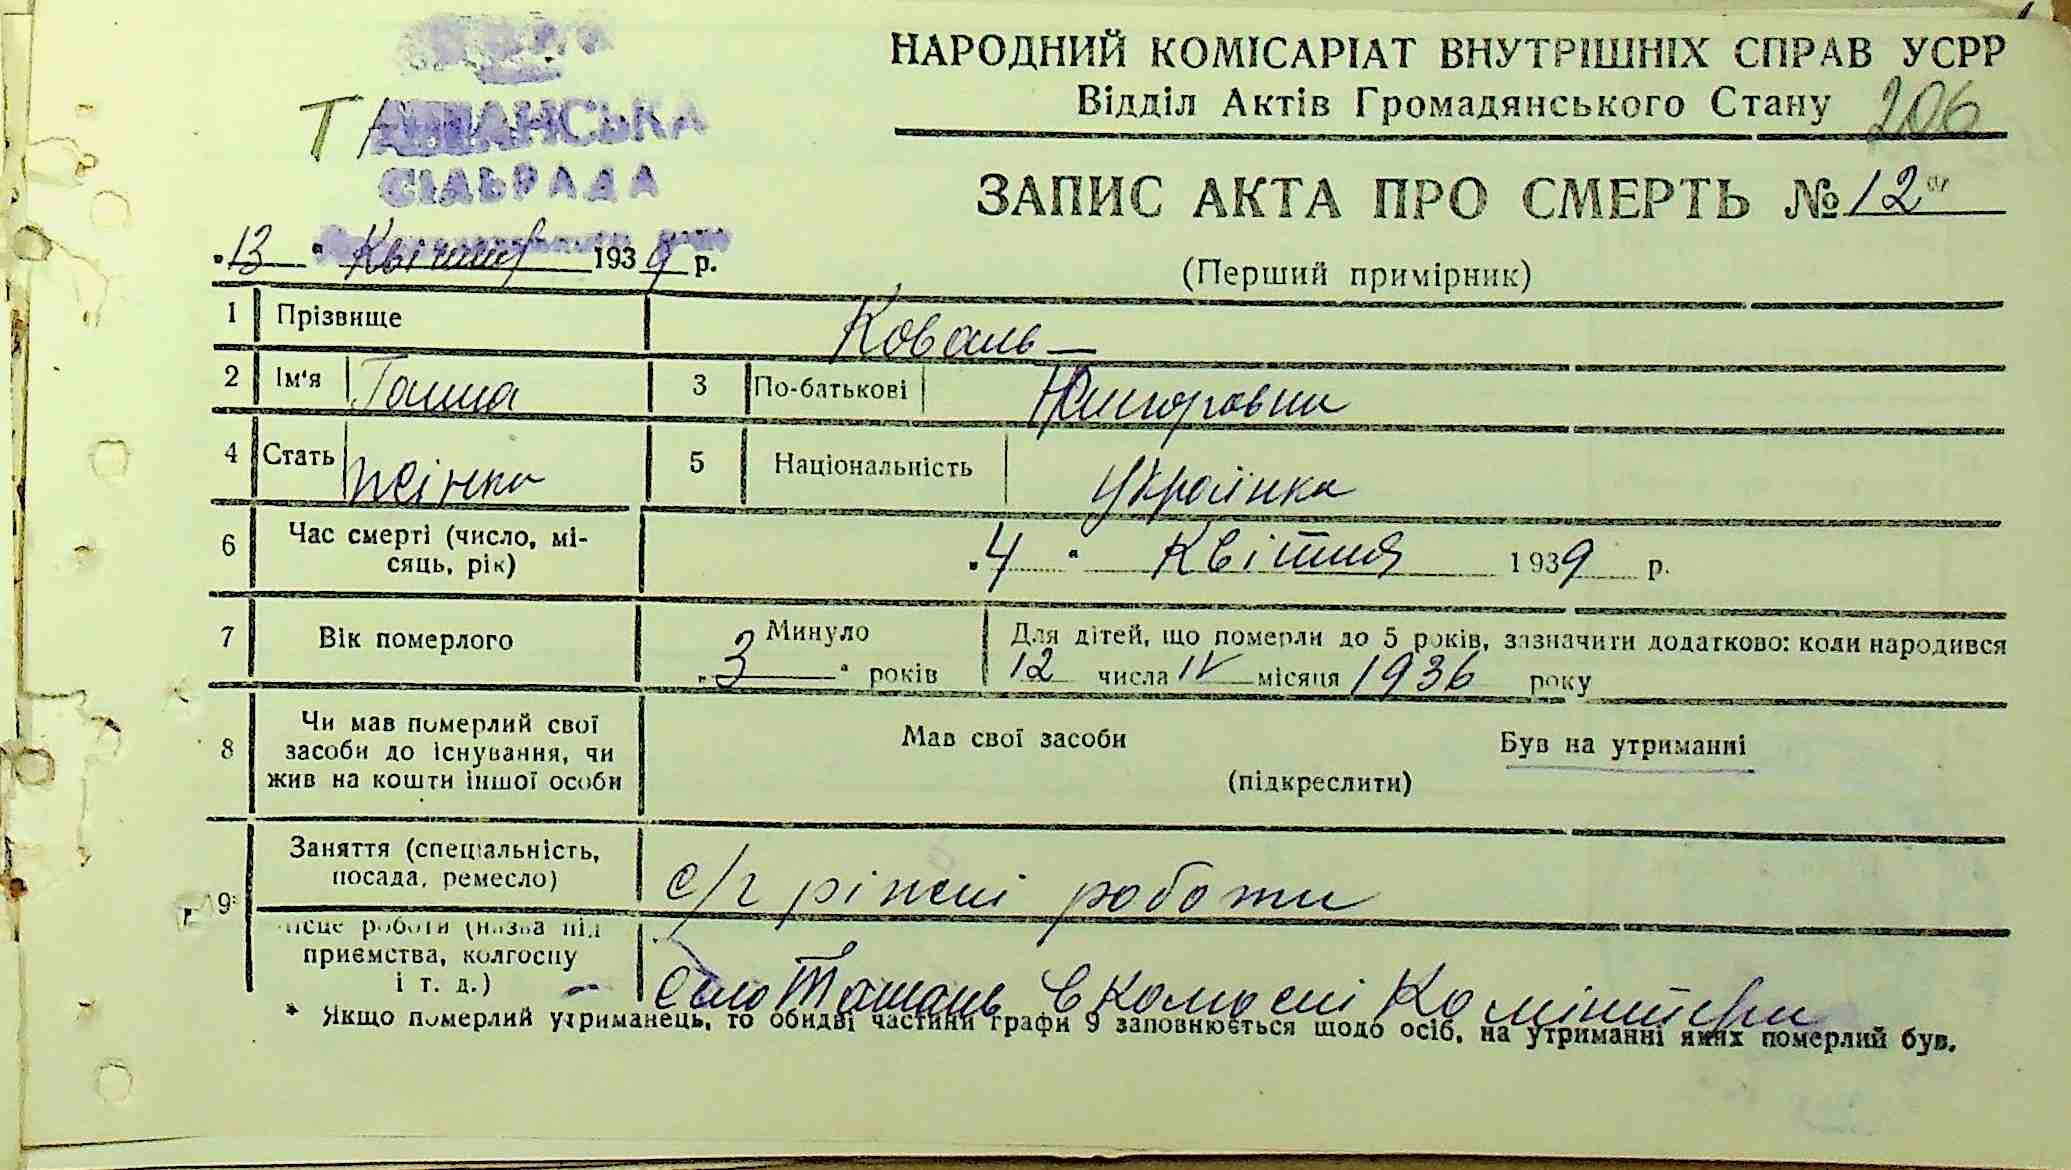 НАРОДНИЙ КОМІСАРІАТ ВНУТРІШНІХ СПРАВ УСРР
Відділ Актів Громадянського Стану 206
ТАШАНСЬКА
СІЛЬРАДА
ЗАПИС АКТА ПРО СМЕРТЬ № 12
„13“ Квітня 1939 р.
(Перший примірник)
1 Прізвище Коваль
2 Ім'я Ганна 3 По-батькові
4 Стать жінка 5 Національність Українка
6 Час смерті (число, мі-
сяць, рік) „4“ Квітня 1939 р.
7 Вік померлого Минуло
„3“ років
Для дітей, що померли до 5 років, зазначити додатково: коли народився
12 числа IV місяця 1936 року
8 Чи мав померлий свої
засоби до існування, чи
жив на кошти іншої особи
Мав свої засоби Був на утриманні
(підкреслити)
9* Заняття (спеціальність,
посада, ремесло) с/г ріжні роботи
місце роботи (назва під
приємства, колгоспу
і т. д.) село Ташань в Комінтерн
* Якщо померлий утриманець, то обидві частини графи 9 заповнюється щодо осіб, на утриманні яких померлий був.